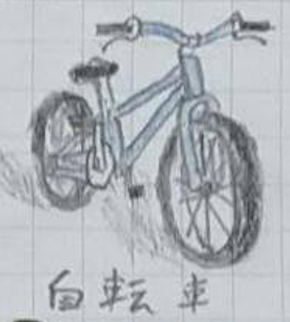 自転車